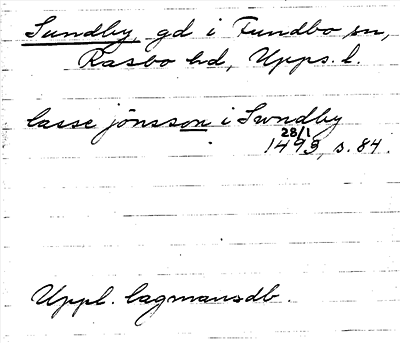 Sundby, gd i Fundbo sn,
Rasbo hd, Upps. l.
lasse jönsson i Swndby
28/1
1493, s. 84.
Uppl. lagmansdb.